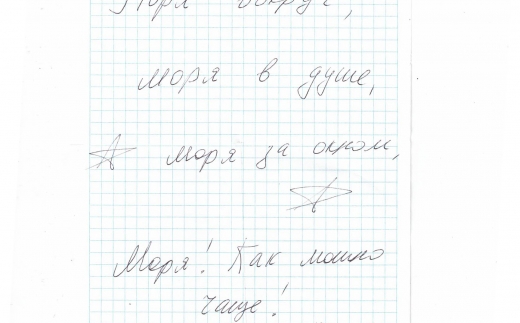 Моря вокруг,
моря в душе,
моря за окном,
Моря! Как можно
чаще!